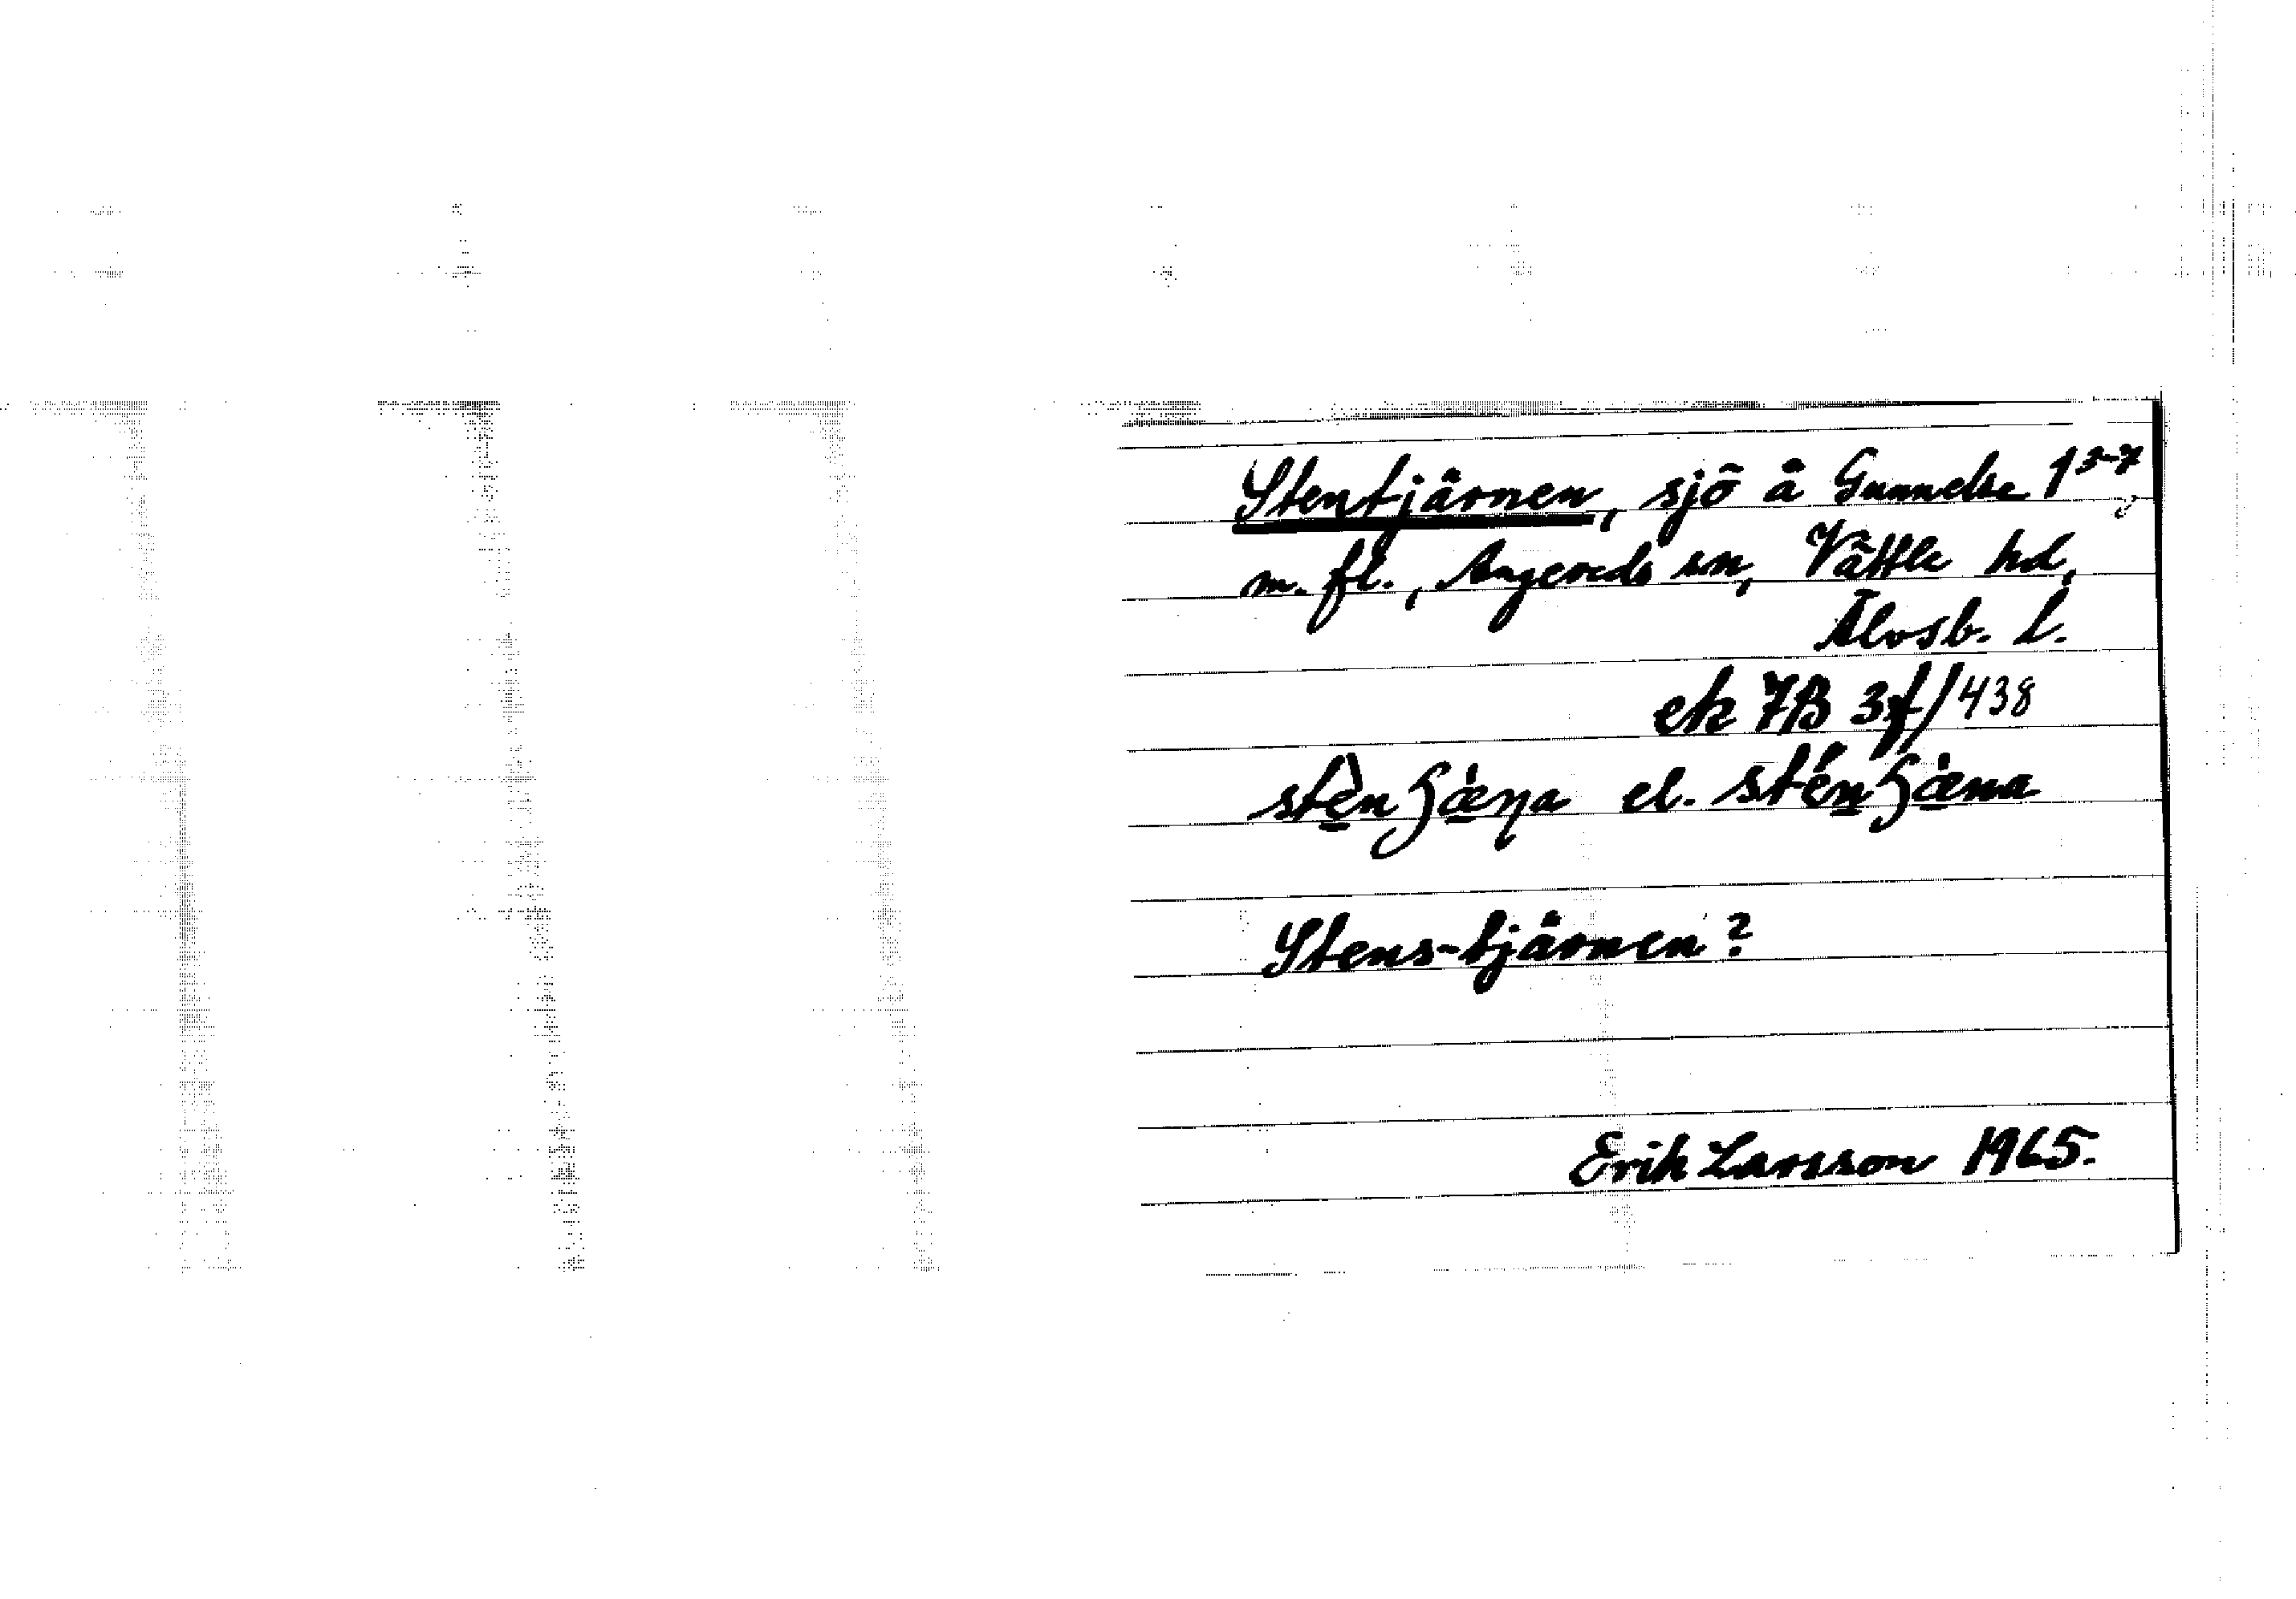 Stentjärnen, sjö å Gunnelse 1³⁻⁷
m. fl., Angereds sn, Vättle hd,
Älvsb. l.
ek 7B 3f/438
el.
Stens-tjärnen?
Erik Larsson 1965.